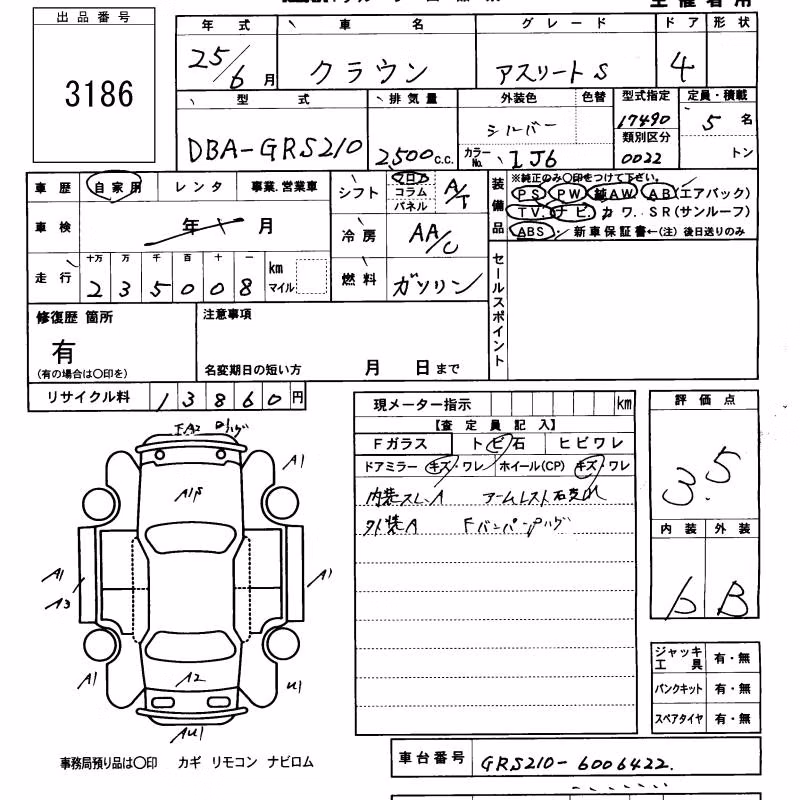 出品番号
3186
年式 車名 グレード ドア 形状
25/6月 クラウン アスリートS 4
型式 排気量 外装色 色替 型式指定 定員・積載
DBA-GRS210 2,500c.c. シルバー 17490 5名
カラーNo. 1J6 類別区分 0022 トン
車歴 自家用 レンタ 事業.営業車
車検 年 月
走行 十万 万 千 百 十 一
235008 km マイル
シフト フロア コラム パネル A/T
冷房 AA/C
燃料 ガソリン
装備品 ※純正のみ〇印をつけて下さい。
PS PW 純AW. AB(エアバック)
TV. ナビ. カワ. SR(サンルーフ)
ABS 新車保証書←(注) 後日送りのみ
セールスポイント
修復歴 箇所
有
(有の場合は〇印を)
注意事項
名変期日の短い方 月 日まで
リサイクル料 13860円
現メーター指示 km
【査定員記入】
Fガラス トビ石 ヒビワレ
ドアミラー キズ・ワレ ホイール(CP) キズ・ワレ
内装スレ、A アームレスト
外装A Fバンパー
評価点
3.5
内装 外装
B
A1
A1
A3
A1
A1
A2
U1
AU1
ジャッキ 工具 有・無
パンクキット 有・無
スペアタイヤ 有・無
事務局預り品は〇印 カギ リモコン ナビロム
車台番号 GRS210-6006422.